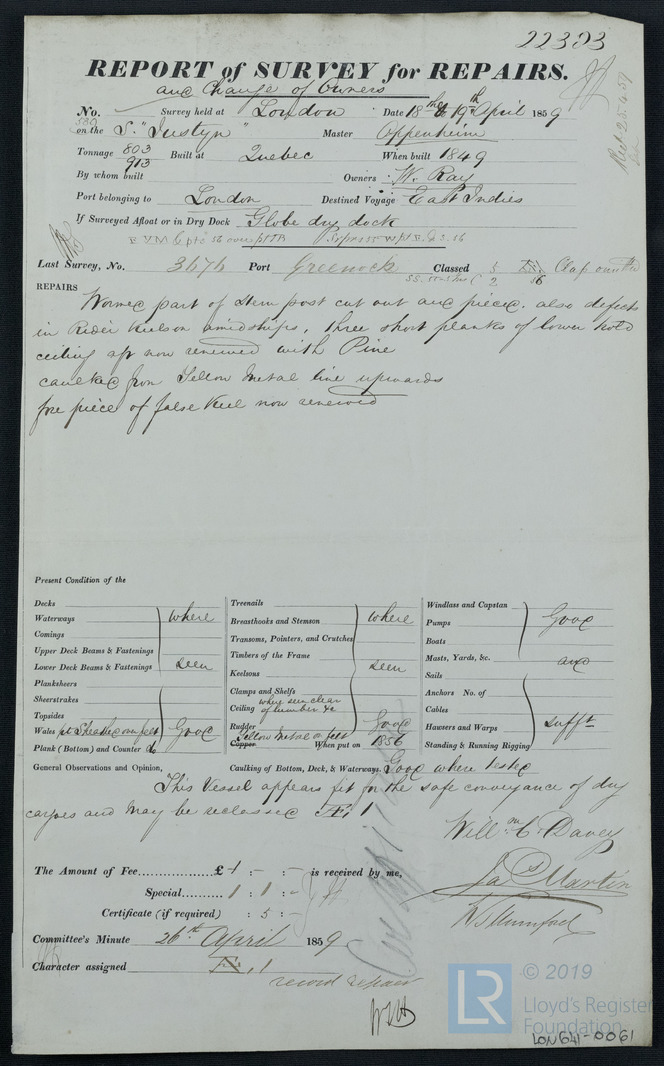 22303
REPORT of SURVEY for REPAIRS.
and Change of Owners
No. Survey held at London Date 18th & 19th April 1859
on the S. "Justyn" Master Oppenheim
Tonnage 803 913 Built at Quebec When built 1849
By whom built Owners W. Ray
Port belonging to London Destined Voyage East Indies
If Surveyed Afloat or in Dry Dock Globe dry dock
Last Survey, No. 3676 Port Greenock Classed
REPAIRS
Wormed part of stem post cut out and pieced. also defects
in Rider Keelson amidships, three short planks of lower hold
ceiling aft now renewed with Pine
caulked from Yellow Metal line upwards
fore piece of false keel now renewed
Present Condition of the
Decks
Waterways where
Comings
Upper Deck Beams & Fastenings
Lower Deck Beams & Fastenings seen
Planksheers
Sheerstrakes
Topsides
Wales Good
Plank (Bottom) and Counter do
Treenails
Breasthooks and Stemson where
Transoms, Pointers, and Crutches
Timbers of the Frame
Keelsons seen
Clamps and Shelfs
Ceiling where seen clear of lumber &c
Rudder Good
Yellow Metal on felt
Copper When put on 1856
Windlass and Capstan
Pumps Good
Boats
Masts, Yards, &c. and
Sails
Anchors No. of
Cables
Hawsers and Warps sufft
Standing & Running Rigging
General Observations and Opinion, Caulking of Bottom, Deck, & Waterways. Good where tested
This Vessel appears fit for the safe conveyance of dry
cargoes and may be reclassed Æ, 1
Willm C. Davey
The Amount of Fee £1 : - : - is received by me,
Jas Martin
Special 1 : 1 : -
Certificate (if required) : 5 : -
H S Mumford
Committee's Minute 26th April 1859
Character assigned Æ, 1
record repairs
LR © 2019
Lloyd's Register
Foundation
LON641-0061